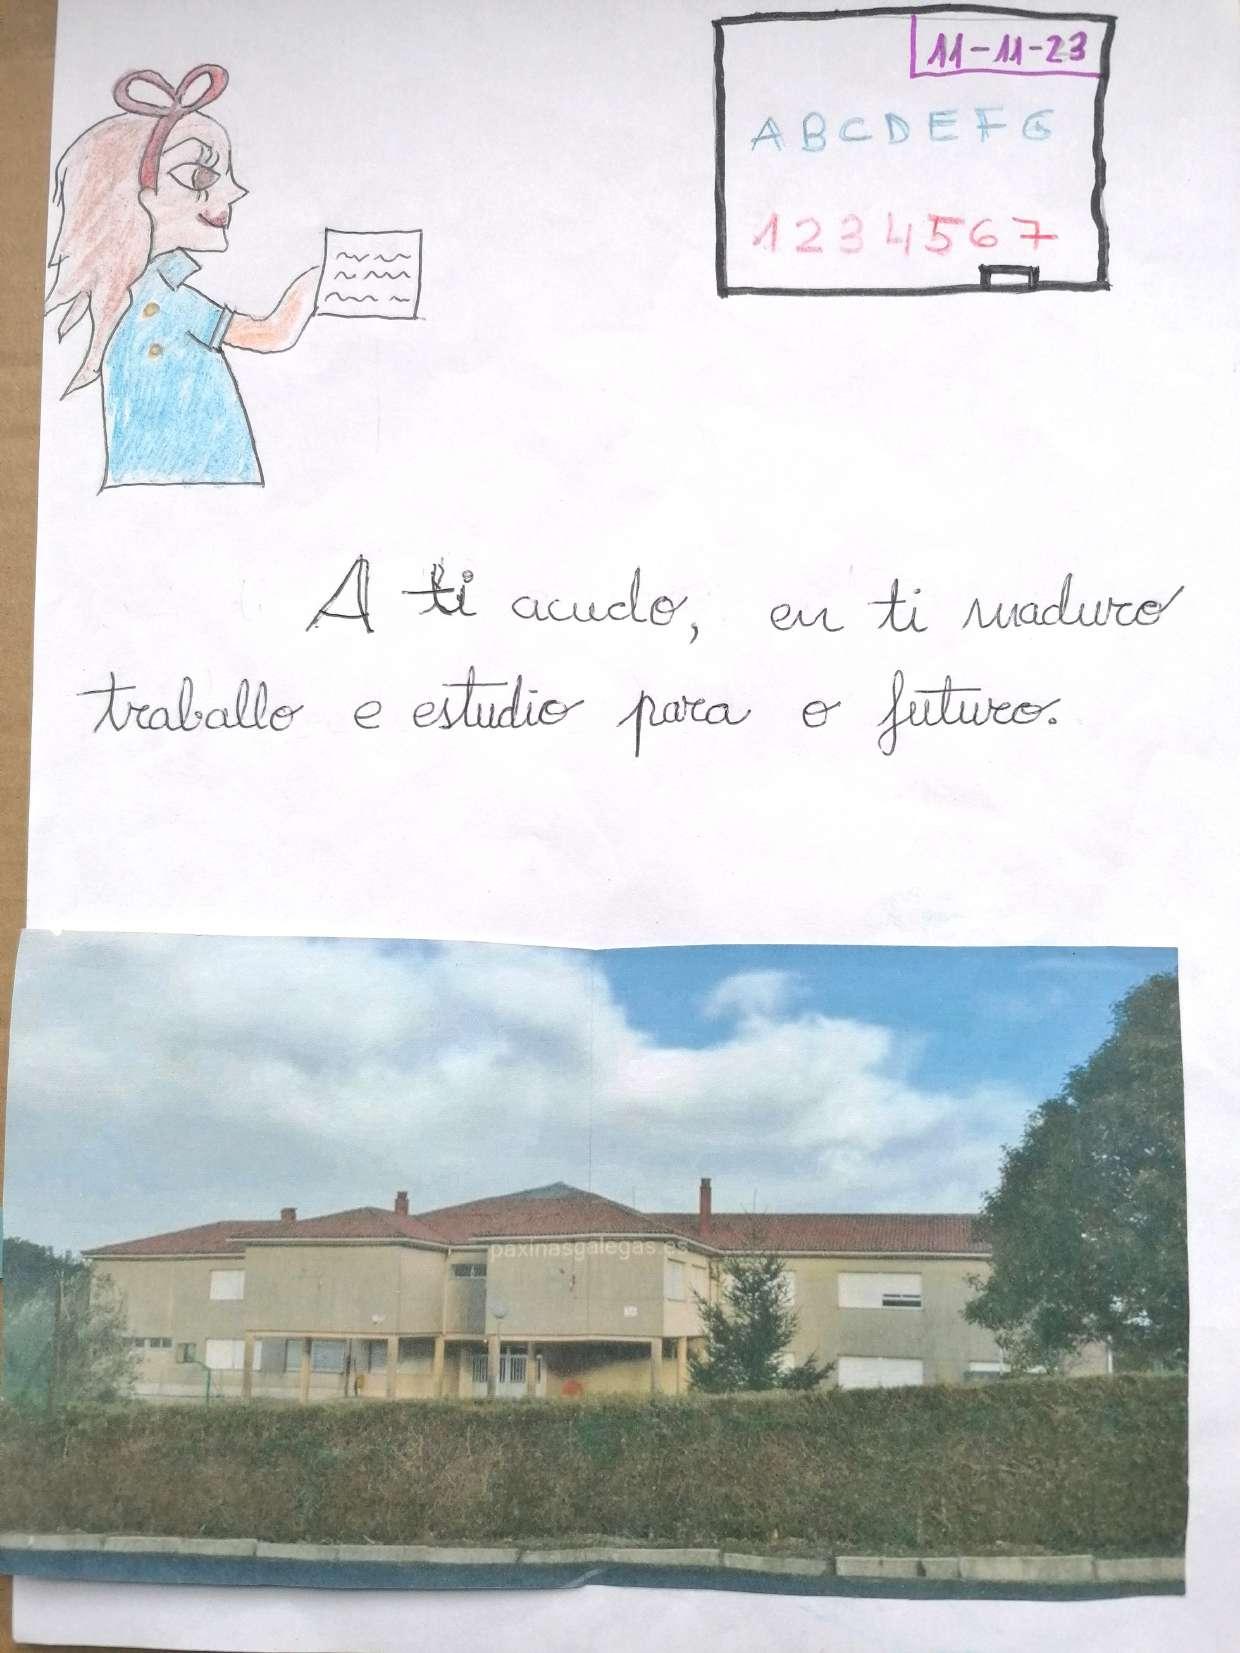 11-11-23
A B C D E F G
1 2 3 4 5 6 7
A ti acudo, en ti maduro
traballo e estudio para o futuro.
paxinasgalegas.es